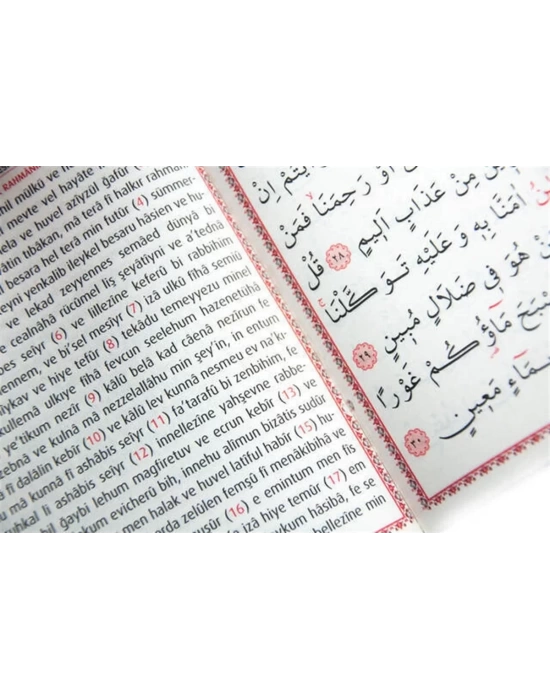 RAHMANİ
hil mülkü ve
mevte vel hayâte
ve huvel azîyzül gafûr
âtin tıbâkan, mâ terâ fî halkır rahmân
besara hel terâ min futûr (4) sümmer-
eyni yenkalib ileykel besaru hâsien ve hu-
ve lekad zeyyennes semâed dünyâ bi
ve cealnâhâ rücûmel liş şeyâtiyni ve a'tednâ
bes seiyr (6) ve lillezîne keferû bi rabbihim
ennem, ve bi'sel mesîyr (7) izâ ulkû fîhâ semiû
îykav ve hiye tefûr (8) tekâdu temeyyezu minel
kullemâ ulkıye fîhâ fevcun seelehum hazenetühâ
e'tikum nezîr (9) kâlû belâ kad câenâ nezîrun fe
zebnâ ve kulnâ mâ nezzelallâhu min şey'in, in entum
â fî dalâlin kebîr (10) ve kâlû lev kunnâ nesmeu ev na'k-
mâ kunnâ fî ashâbis seiyr (11) fa'tarafû bi zenbihim, fe
uhkal li ashâbis seiyr (12) innellezîne yahşevne rabbe-
bil ğaybi lehum magfiretuv ve ecrun kebîr (13) ve
kum evicherû bih, innehu alîmun bizâtis sudûr
men halak ve huvel latîful habîr (15) hu-
arda zelûlen femşû fî menâkibihâ ve
nuşûr (16) e emintum men fis
izâ hiye temûr (17) em
aykum hâsibâ, fe se
bellezîne min
اِنْ
اَوْ رَحِمَنَا فَمَنْ
مِنْ عَذَابٍ اَلِيمٍ ٢٨ قُلْ
اٰمَنَّا بِهِ وَعَلَيْهِ تَوَكَّلْنَا
هُوَ فِي ضَلَالٍ مُبِينٍ ٢٩
مَٓاؤُكُمْ غَوْرًا
مَعِينٍ ٣٠